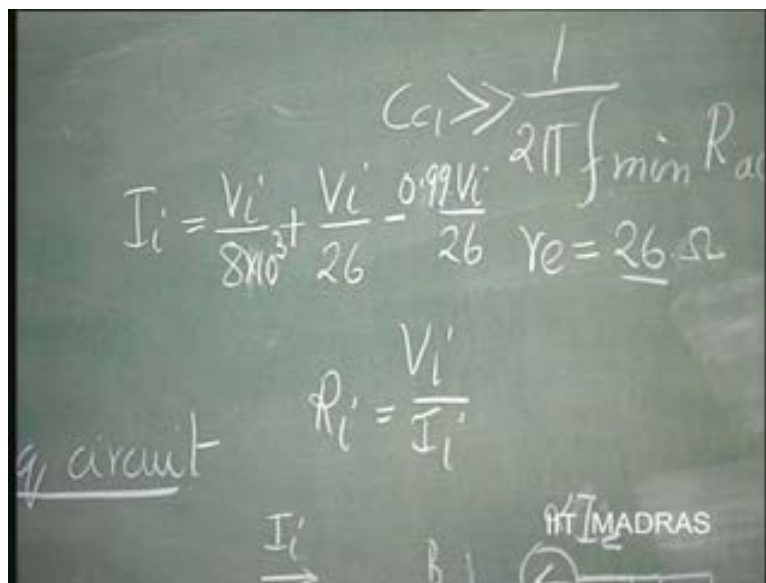 Cc1 >> 1 / 2π f min Rac
Ii = Vi / 8×10³ + Vi / 26 - 0.99Vi / 26
re = 26 Ω
Ri = Vi / Ii
q circuit
Ii
IIT MADRAS